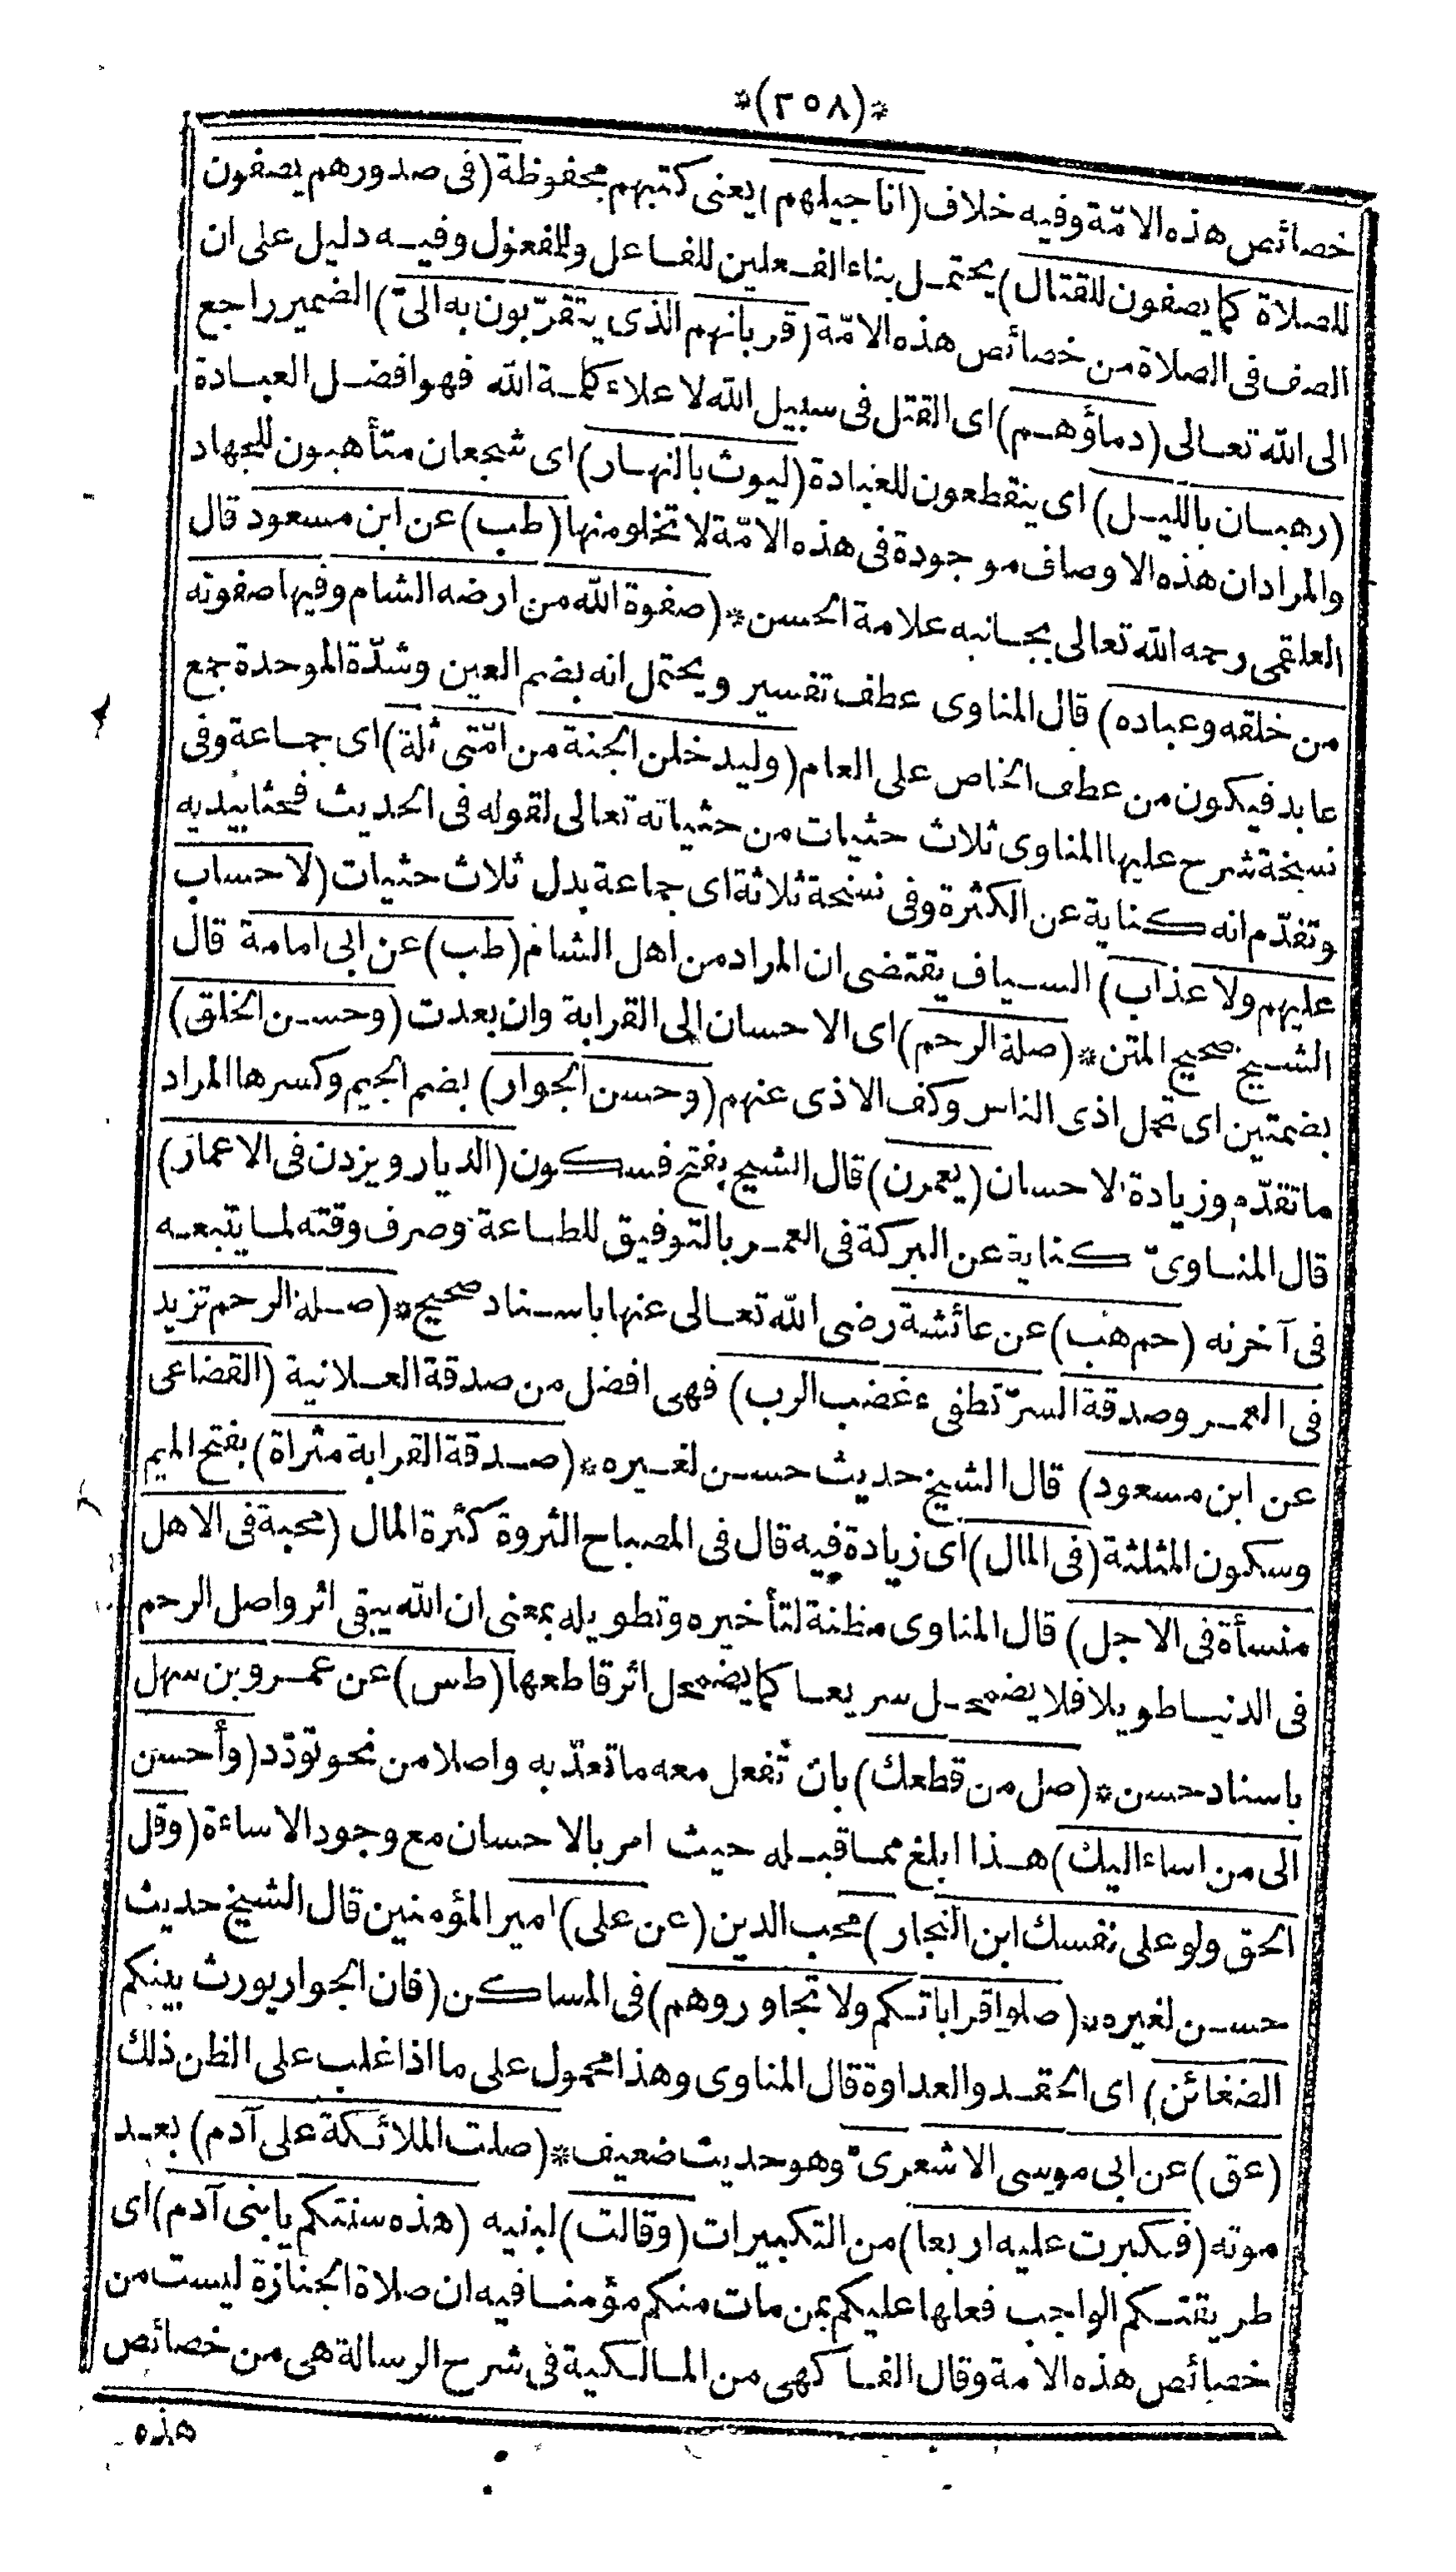 *(٣٥٨)*
خصائص هذه الامّة وفيه خلاف (اناجيلهم) يعنى كتبهم محفوظة (فى صدورهم يصفون
للصلاة كما يصفون للقتال) يحتمل بناء الفعلين للفاعل وللمفعول وفيه دليل على ان
الصف فى الصلاة من خصائص هذه الامّة (قربانهم الذى يتقرّبون به الىّ) الضمير راجع
الى الله تعالى (دماؤهم) اى القتل فى سبيل الله لاعلاء كلمة الله فهو افضل العبادة
(رهبان بالليل) اى ينقطعون للعبادة (ليوث بالنهار) اى شجعان متأهبون للجهاد
والمراد ان هذه الاوصاف موجودة فى هذه الامّة لا تخلو منها (طب) عن ابن مسعود قال
العلقمى رحمه الله تعالى بجانبه علامة الحسن * (صفوة الله من ارضه الشام وفيها صفوته
من خلقه وعباده) قال المناوى عطف تفسير ويحتمل انه بضم العين وشدّة الموحدة جمع
عابد فيكون من عطف الخاص على العام (وليدخلن الجنة من امّتى ثلة) اى جماعة وفى
نسخة شرح عليها المناوى ثلاث حثيات من حثياته تعالى لقوله فى الحديث فحثا بيديه
وتقدّم انه كناية عن الكثرة وفى نسخة ثلاثة اى جماعة بدل ثلاث حثيات (لا حساب
عليهم ولا عذاب) السياق يقتضى ان المراد من اهل الشام (طب) عن ابى امامة قال
الشيخ صحيح المتن * (صلة الرحم) اى الاحسان الى القرابة وان بعدت (وحسن الخلق)
بضمتين اى تحمل اذى الناس وكف الاذى عنهم (وحسن الجوار) بضم الجيم وكسرها المراد
ما تقدّم وزيادة الاحسان (يعمرن) قال الشيخ بفتح فسكون (الديار ويزدن فى الاعمار)
قال المناوىّ كناية عن البركة فى العمر بالتوفيق للطاعة وصرف وقته لما يتبعه
فى آخرته (حم هب) عن عائشة رضى الله تعالى عنها باسناد صحيح * (صلة الرحم تزيد
فى العمر وصدقة السرّ تطفىء غضب الرب) فهى افضل من صدقة العلانية (القضاعى
عن ابن مسعود) قال الشيخ حديث حسن لغيره * (صدقة القرابة مثراة) بفتح الميم
وسكون المثلثة (فى المال) اى زيادة فيه قال فى المصباح الثروة كثرة المال (محبة فى الاهل
منسأة فى الاجل) قال المناوى مظنة لتأخيره وتطويله بمعنى ان الله يبقى اثر واصل الرحم
فى الدنيا طويلا فلا يضمحل سريعا كما يضمحل اثر قاطعها (طس) عن عمرو بن سهل
باسناد حسن * (صل من قطعك) بان تفعل معه ما تعدّ به واصلا من نحو تودّد (وأحسن
الى من اساء اليك) هذا ابلغ مما قبله حيث امر بالاحسان مع وجود الاساءة (وقل
الحق ولو على نفسك ابن النجار) محب الدين (عن على) امير المؤمنين قال الشيخ حديث
حسن لغيره * (صلوا قراباتكم ولا تجاوروهم) فى المساكن (فان الجوار يورث بينكم
الضغائن) اى الحقد والعداوة قال المناوى وهذا محمول على ما اذا غلب على الظن ذلك
(عق) عن ابى موسى الاشعرىّ وهو حديث ضعيف * (صلت الملائكة على آدم) بعد
موته (فكبرت عليه اربعا) من التكبيرات (وقالت) لبنيه (هذه سنتكم يا بنى آدم) اى
طريقتكم الواجب فعلها عليكم بمن مات منكم مؤمنا فيه ان صلاة الجنازة ليست من
خصائص هذه الامة وقال الفاكهى من المالكية فى شرح الرسالة هى من خصائص
هذه